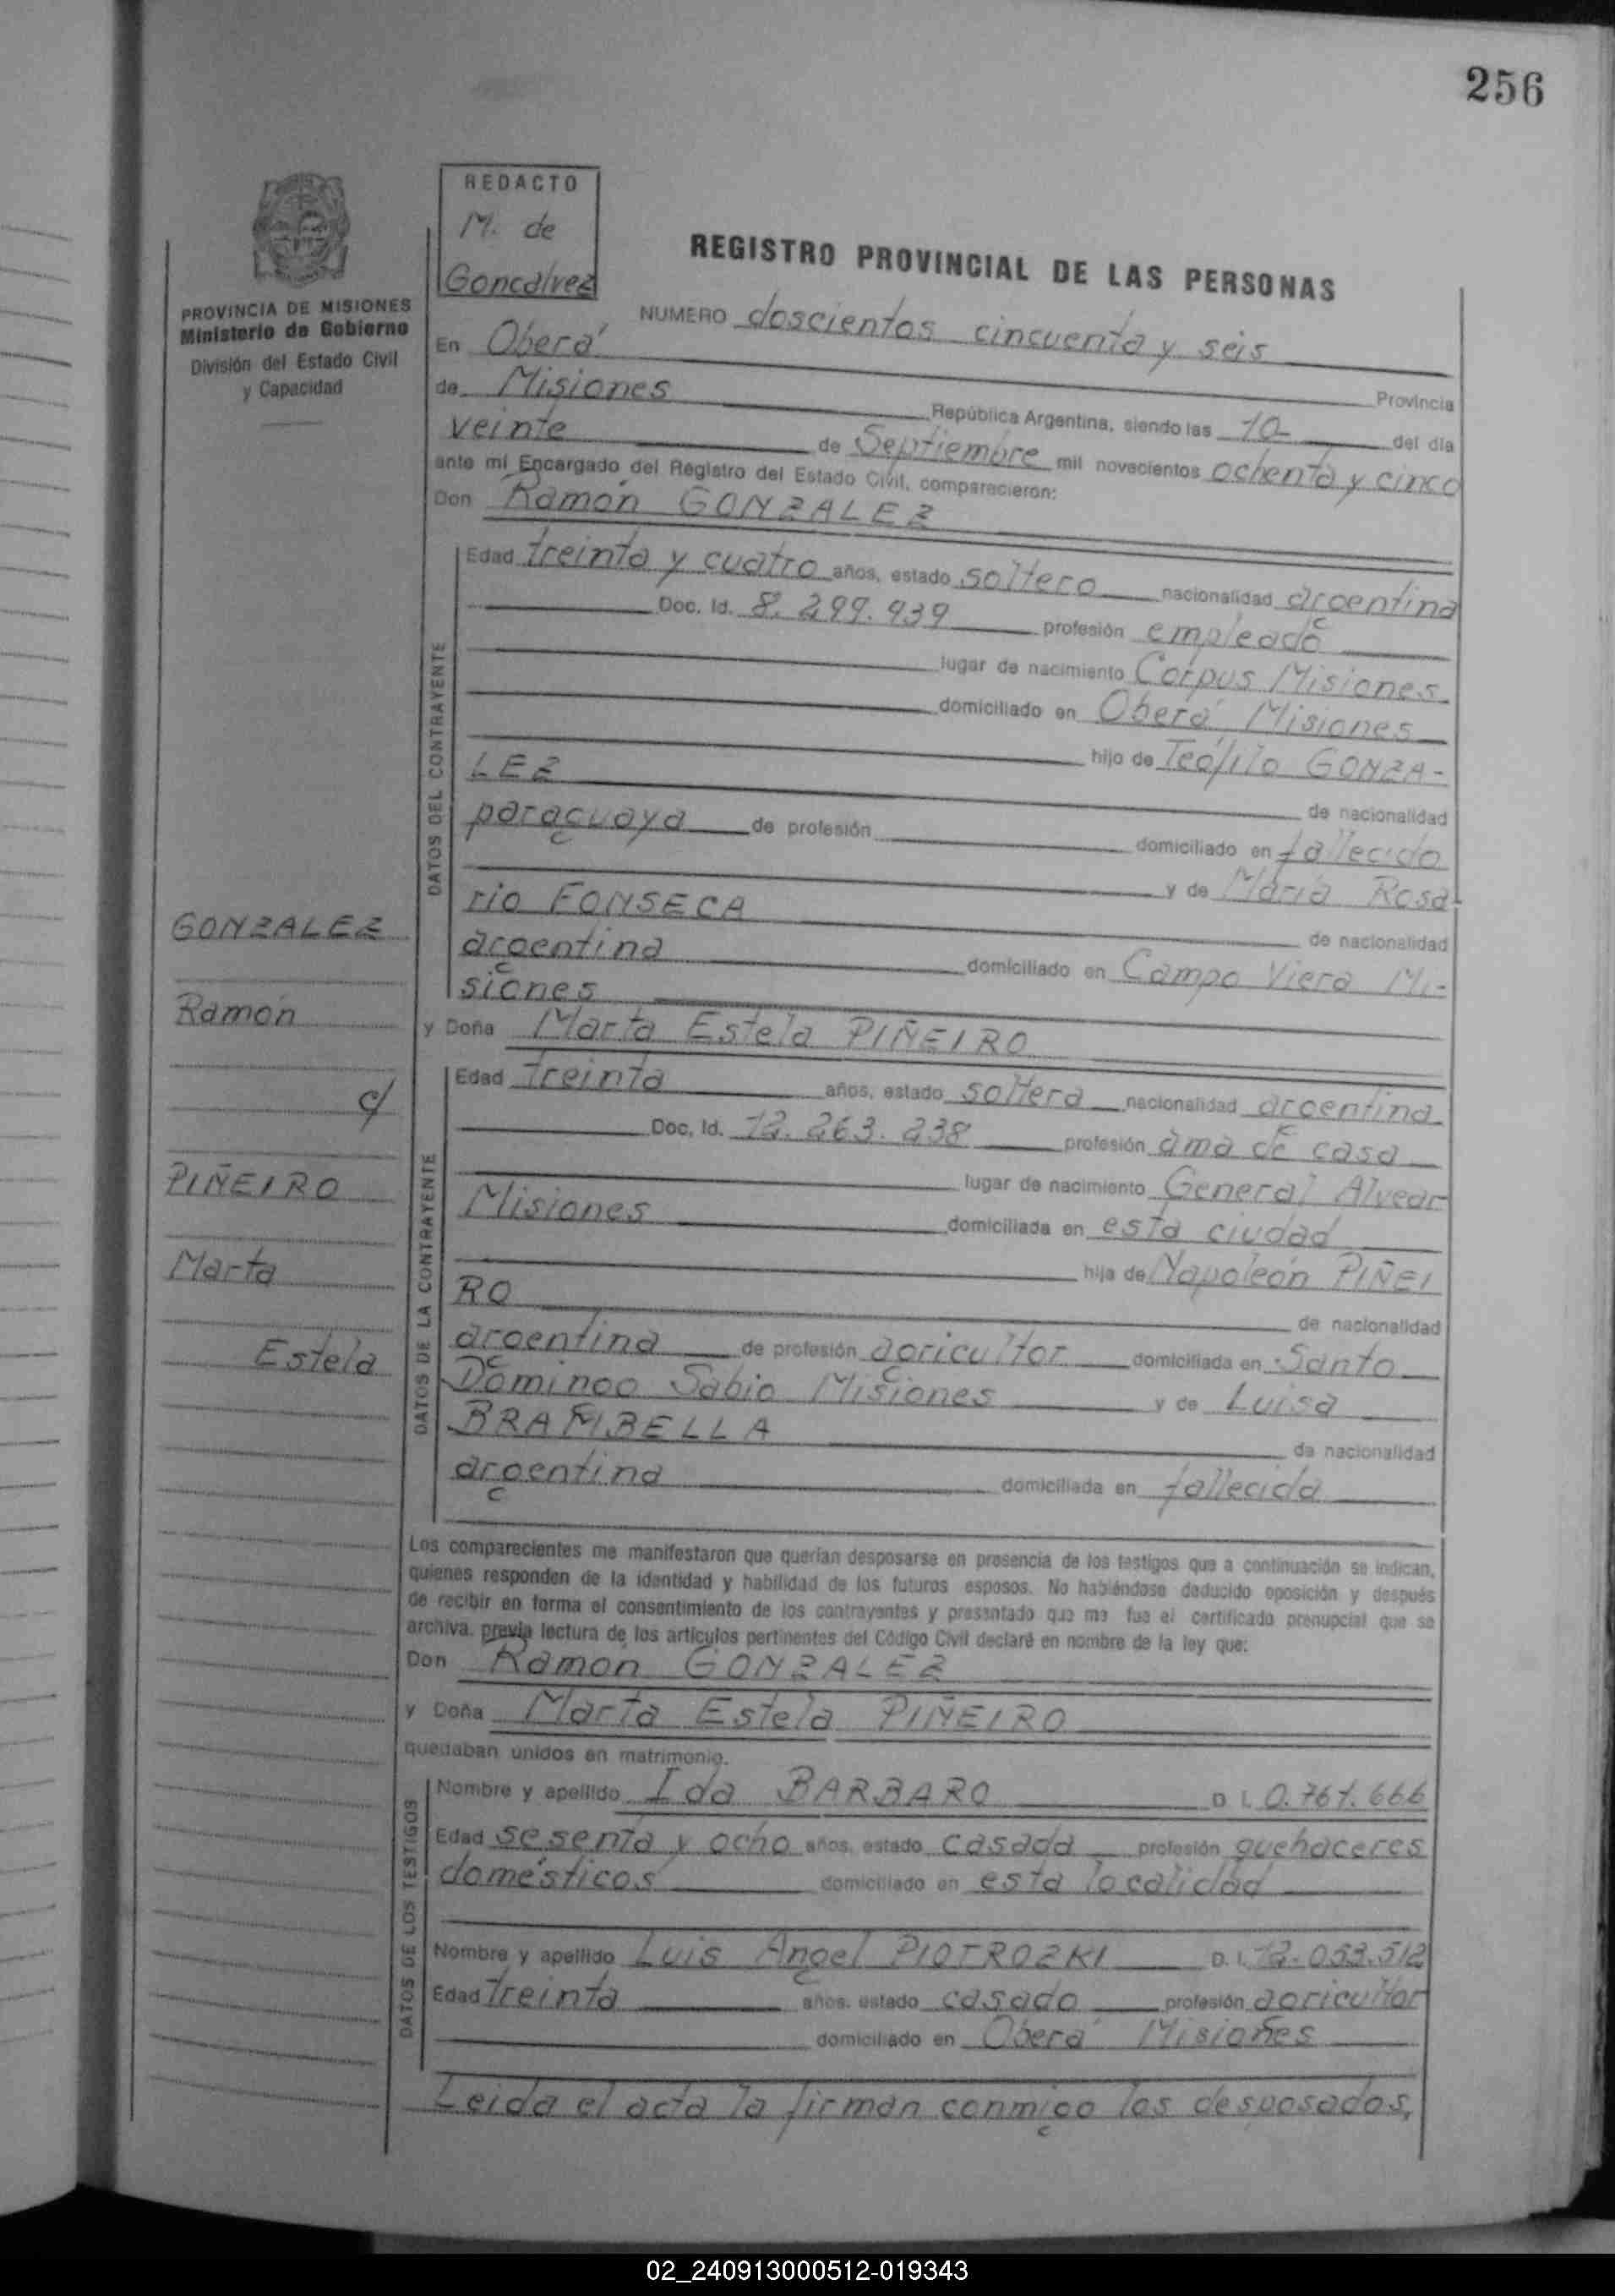 256
REDACTO
M. de
Goncalvez
PROVINCIA DE MISIONES
Ministerio de Gobierno
División del Estado Civil
y Capacidad
REGISTRO PROVINCIAL DE LAS PERSONAS
NUMERO doscientos cincuenta y seis
En Oberá Provincia
de Misiones República Argentina, siendo las 10 del día
veinte de Septiembre mil novecientos ochenta y cinco
ante mí Encargado del Registro del Estado Civil, comparecieron:
Don Ramón GONZALEZ
DATOS DEL CONTRAYENTE
Edad treinta y cuatro años, estado soltero nacionalidad argentina
Doc. Id. 8.299.939 profesión empleado
lugar de nacimiento Corpus Misiones
domiciliado en Oberá Misiones
hijo de Teófilo GONZA-
LEZ de nacionalidad
paraguaya de profesión domiciliado en fallecido
y de María Rosa-
rio FONSECA de nacionalidad
argentina domiciliado en Campo Viera Mi-
siones
y Doña Marta Estela PIÑEIRO
DATOS DE LA CONTRAYENTE
Edad treinta años, estado soltera nacionalidad argentina
Doc. Id. 12.263.238 profesión ama de casa
lugar de nacimiento General Alvear
Misiones domiciliada en esta ciudad
hija de Napoleón PIÑEI
RO de nacionalidad
argentina de profesión agricultor domiciliada en Santo
Domingo Sabio Misiones y de Luisa
BRAMBELLA de nacionalidad
argentina domiciliada en fallecida
GONZALEZ
Ramón
c/
PIÑEIRO
Marta
Estela
Los comparecientes me manifestaron que querían desposarse en presencia de los testigos que a continuación se indican,
quienes responden de la identidad y habilidad de los futuros esposos. No habiéndose deducido oposición y después
de recibir en forma el consentimiento de los contrayentes y presentado que me fue el certificado prenupcial que se
archiva, previa lectura de los artículos pertinentes del Código Civil declaré en nombre de la ley que:
Don Ramon GONZALEZ
y Doña Marta Estela PIÑEIRO
quedaban unidos en matrimonio.
DATOS DE LOS TESTIGOS
Nombre y apellido Ida BARBARO D. I. 0.767.666
Edad sesenta y ocho años, estado casada profesión quehaceres
domésticos domiciliado en esta localidad
Nombre y apellido Luis Angel PIOTROZKI D. I. 12.053.512
Edad treinta años, estado casado profesión agricultor
domiciliado en Oberá Misiones
Leida el acta la firman conmigo los desposados,
02_240913000512-019343